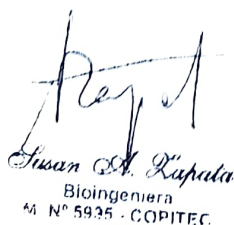 Susan A. Zapata
Bioingeniera
M N° 5935 - COPITEC